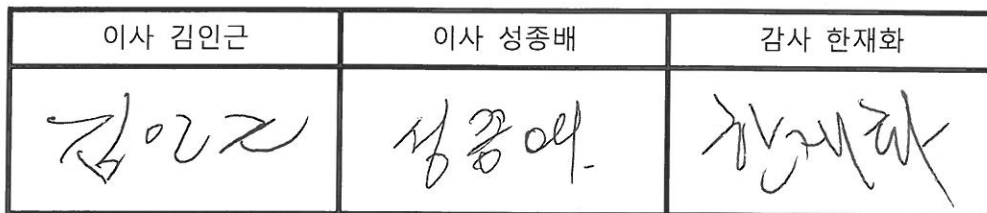 이사 김인근 이사 성종배 감사 한재화
김인근 성종배 한재화